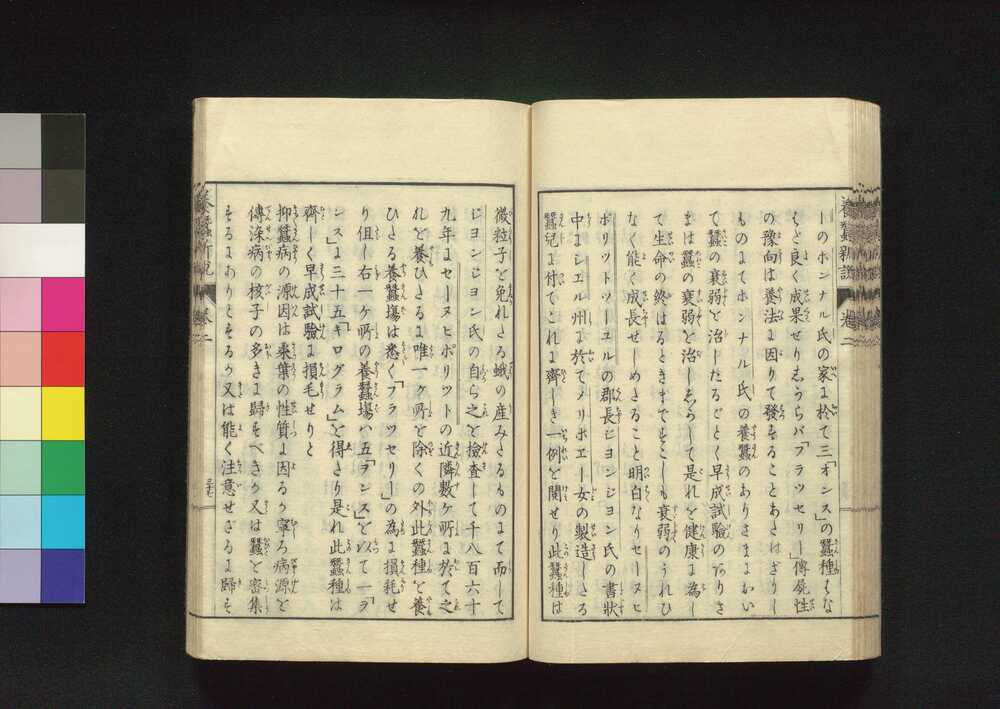 ーのホンナル氏の家ニ於て三「オンス」の蠶種はな
はだ良く成果せりしからバ「フラッセリー」傳屍性
の豫向は養法ニ因りて發することあたはざりし
ものにてホンナル氏の養蠶のありさまニおい
て蠶の衰弱を治したるごとく早成試驗のありさ
まは蠶の衰弱を治ししかして是れを健康ニ為し
て生命の終はるときまですこしも衰弱のうれひ
なく能く成長せしめたること明白なりセーヌヒ
ポリットツーユルの郡長ジヨンジヨン氏の書狀
中ニシエル州ニ於てメリポエー女の製造したる
蠶兒ニ付てこれニ齊しき一例を関せり此蠶種は
微粒子を免れたる蛾の産みたるものにて而して
ジヨンジヨン氏の自ら之を檢査して千八百六十
九年ニセーヌヒポリットの近隣數ケ所ニ於て之
れを養ひたるニ唯一ケ所を除くの外此蠶種を養
ひたる養蠶塲は悉く「フラッセリー」の為ニ損耗せ
り但し右一ケ所の養蠶塲ハ五「ヲンス」を以て一「ヲ
ンス」ニ三十五「キログラム」を得たり是れ此蠶種は
齊しく早成試驗ニ損毛せりと
抑蠶病の源因は桒葉の性質ニ因るか寧ろ病源を
傳染病の核子の多きニ歸すべきか又は蠶を密集
するニありとするか又は能く注意せざるニ歸す
養蠶新説
卷二
養蠶新説
卷二